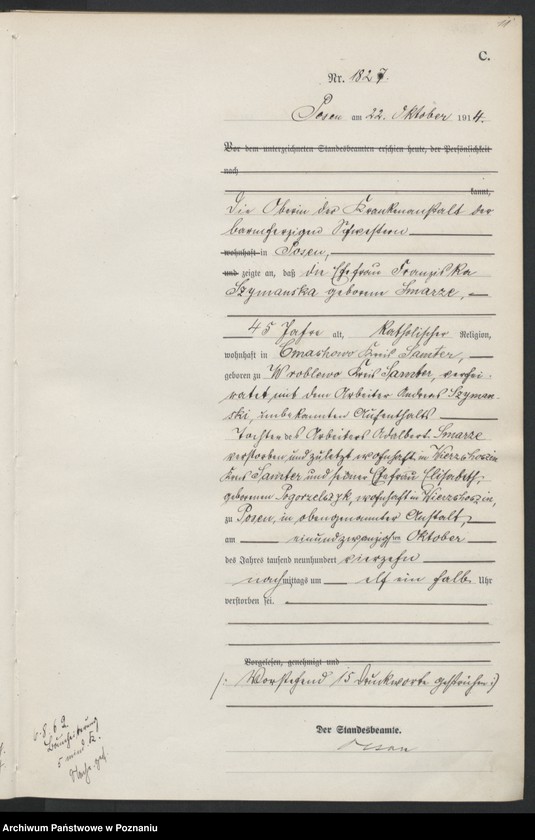 C.
Nr. 1827.
Posen am 22. Oktober 1914.
Vor dem unterzeichneten Standesbeamten erschien heute, der Persönlichkeit
nach
kannt,
Die Oberin der Krankenanstalt der
barmherzigen Schwestern
wohnhaft in Posen,
und zeigte an, daß die Ehefrau Franziska
Szymanska geborene Smarze,
45 Jahre alt, katholischer Religion,
wohnhaft in Kreis Samter,
geboren zu Wroblewo Kreis Samter, verhei-
ratet mit dem Arbeiter Andreas Szyman-
ski, unbekannten Aufenthalts
Tochter des Arbeiters Adalbert Smarze
verstorben und zuletzt wohnhaft in
Kreis Samter und seiner Ehefrau Elisabeth,
geborenen wohnhaft in
zu Posen, in obengenannter Anstalt,
am einundzwanzigsten Oktober
des Jahres tausend neunhundert vierzehn
nachmittags um elf ein halb Uhr
verstorben sei.
Vorgelesen, genehmigt und
(: Vorstehend 15 Druckworte gestrichen :)
Der Standesbeamte.
Archiwum Państwowe w Poznaniu